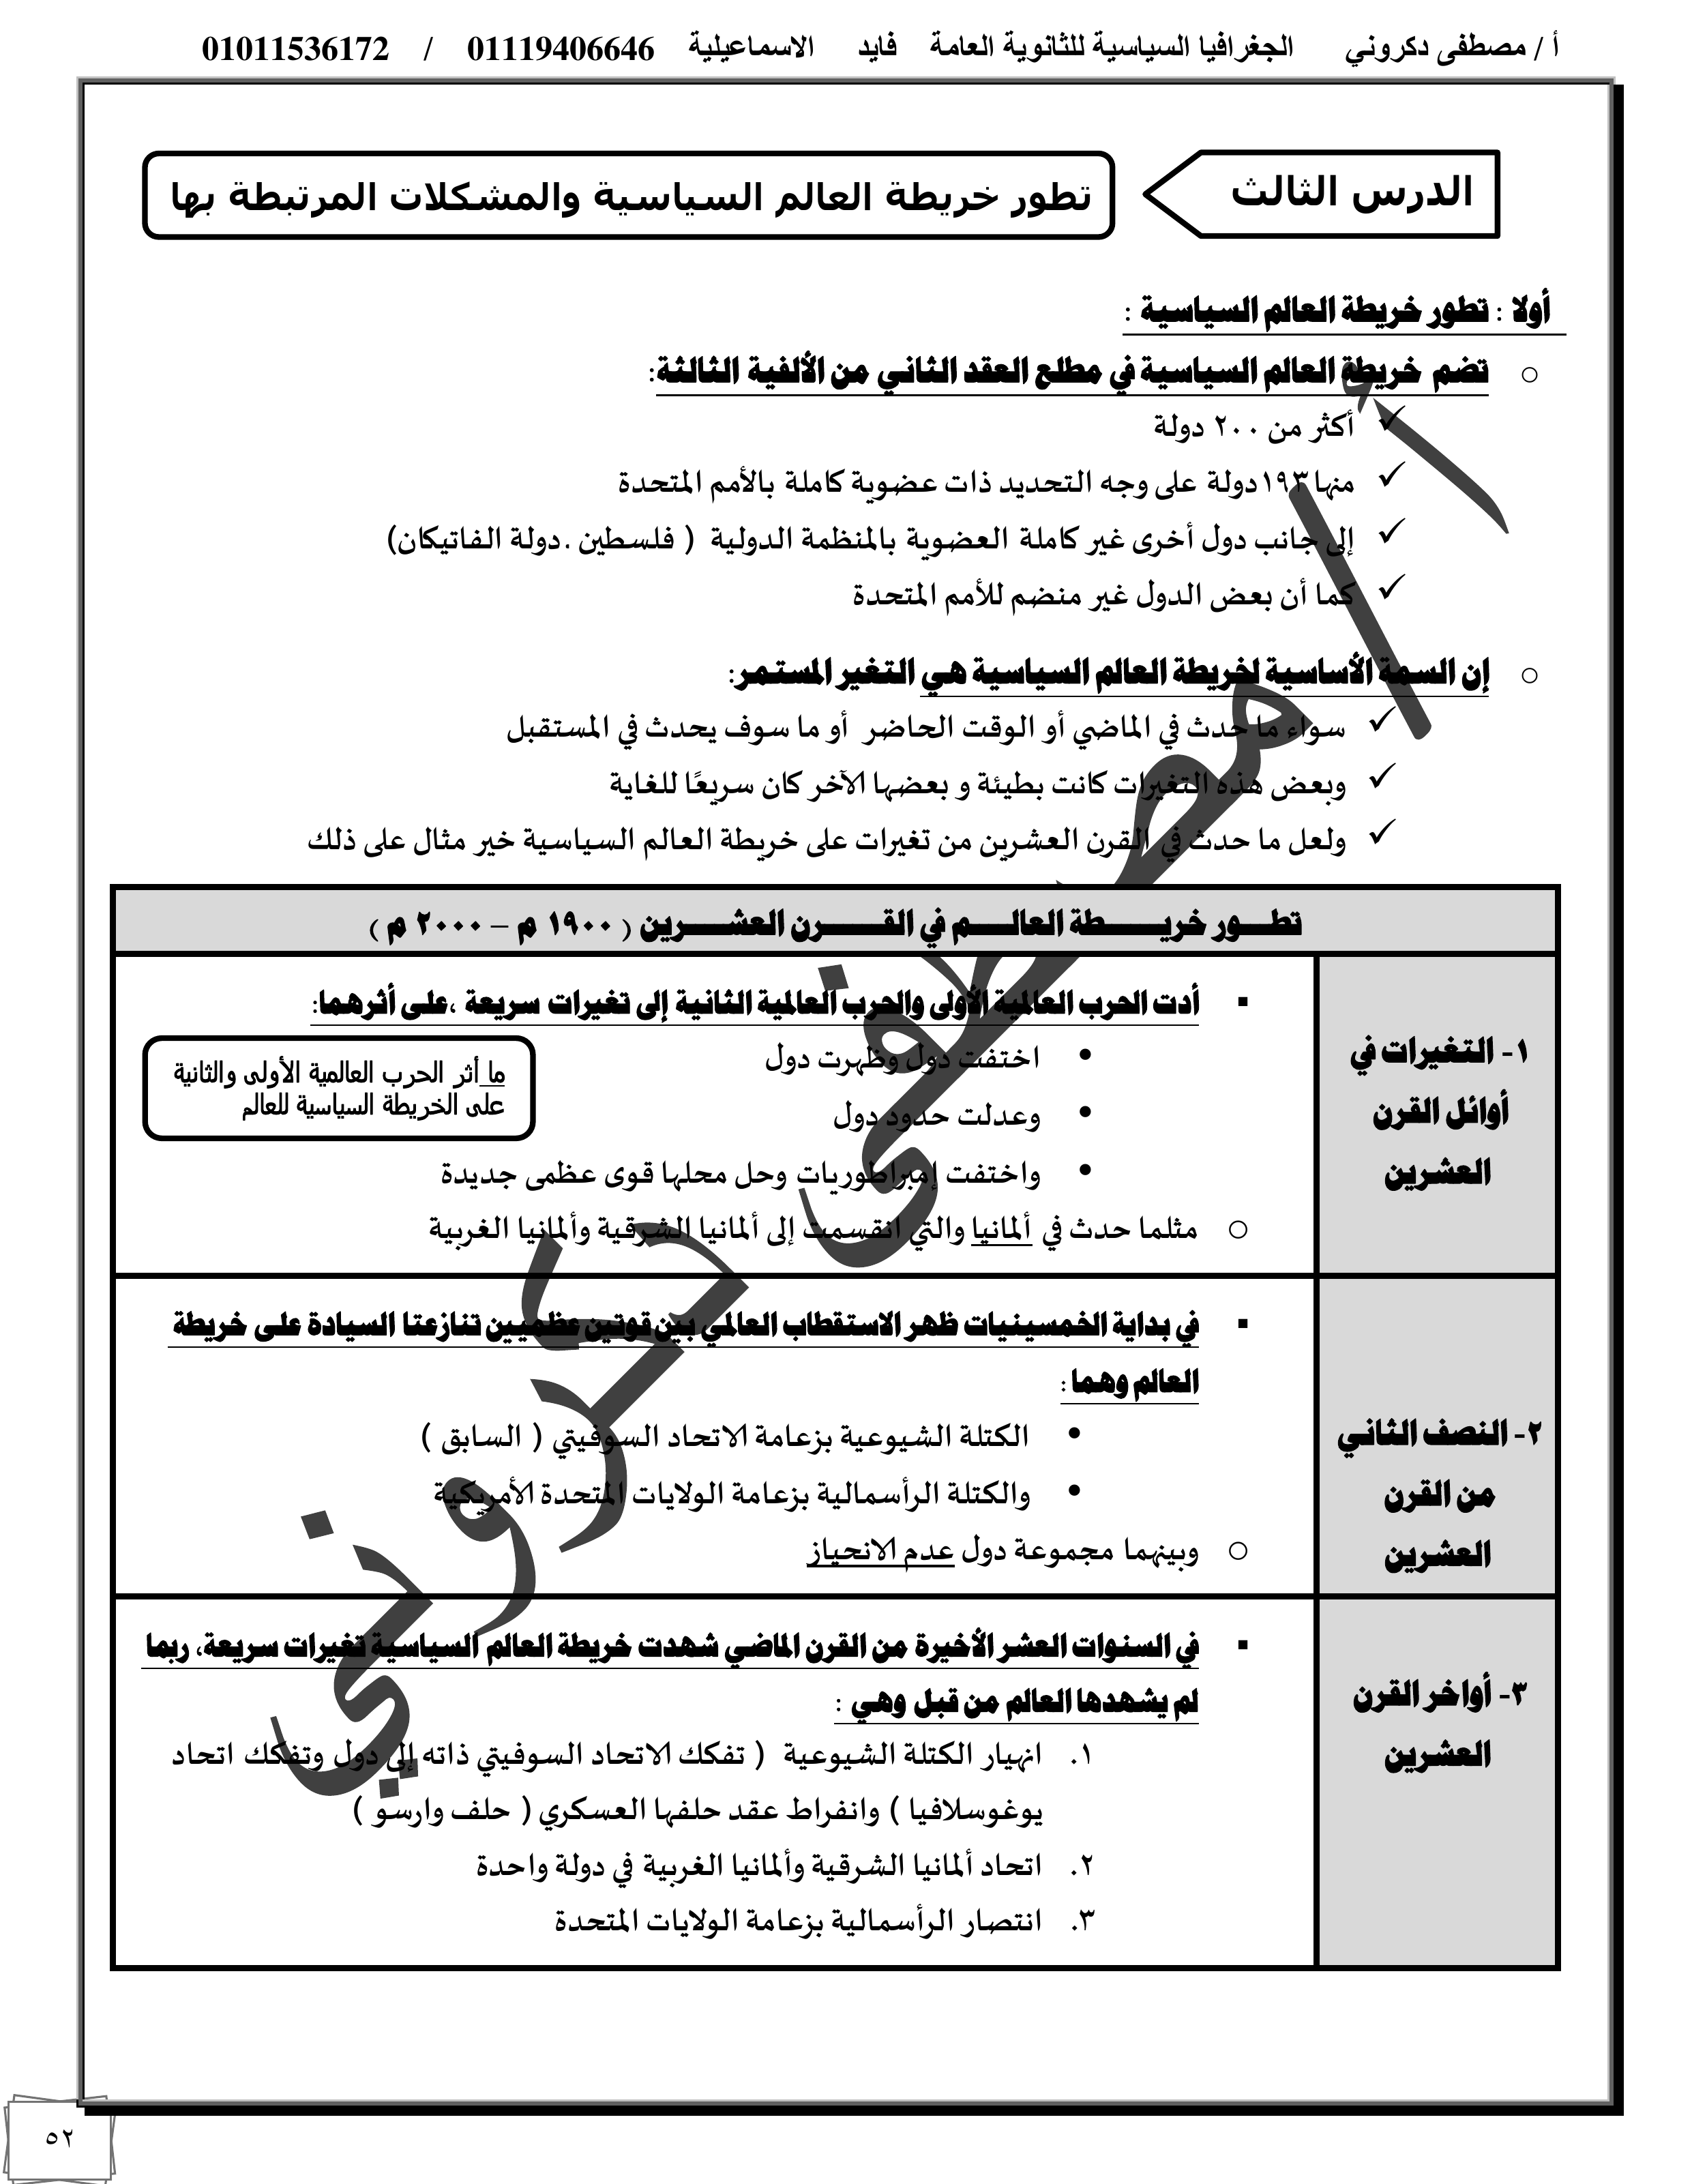 أ / مصطفى دكروني الجغرافيا السياسية للثانوية العامة فايد الاسماعيلية 01119406646 / 01011536172
الدرس الثالث
تطور خريطة العالم السياسية والمشكلات المرتبطة بها
أولا : تطور خريطة العالم السياسية :
○ تضم خريطة العالم السياسية في مطلع العقد الثاني من الألفية الثالثة:
✓ أكثر من ٢٠٠ دولة
✓ منها ١٩٣دولة على وجه التحديد ذات عضوية كاملة بالأمم المتحدة
✓ إلى جانب دول أخرى غير كاملة العضوية بالمنظمة الدولية ( فلسطين .دولة الفاتيكان)
✓ كما أن بعض الدول غير منضم للأمم المتحدة
○ إن السمة الأساسية لخريطة العالم السياسية هي التغير المستمر:
✓ سواء ما حدث في الماضي أو الوقت الحاضر أو ما سوف يحدث في المستقبل
✓ وبعض هذه التغيرات كانت بطيئة و بعضها الآخر كان سريعًا للغاية
✓ ولعل ما حدث في القرن العشرين من تغيرات على خريطة العالم السياسية خير مثال على ذلك
تطـــور خريـــــطة العالـــــم في القـــــرن العشـــــرين ( ١٩٠٠ م – ٢٠٠٠ م )
١- التغيرات في
أوائل القرن
العشرين
▪ أدت الحرب العالمية الأولى والحرب العالمية الثانية إلى تغيرات سريعة ،على أثرهما:
• اختفت دول وظهرت دول
• وعدلت حدود دول
• واختفت إمبراطوريات وحل محلها قوى عظمى جديدة
○ مثلما حدث في ألمانيا والتي انقسمت إلى ألمانيا الشرقية وألمانيا الغربية
ما أثر الحرب العالمية الأولى والثانية
على الخريطة السياسية للعالم
٢- النصف الثاني
من القرن
العشرين
▪ في بداية الخمسينيات ظهر الاستقطاب العالمي بين قوتين عظميين تنازعتا السيادة على خريطة
العالم وهما :
• الكتلة الشيوعية بزعامة الاتحاد السوفيتي ( السابق )
• والكتلة الرأسمالية بزعامة الولايات المتحدة الأمريكية
○ وبينهما مجموعة دول عدم الانحياز
٣- أواخر القرن
العشرين
▪ في السنوات العشر الأخيرة من القرن الماضي شهدت خريطة العالم السياسية تغيرات سريعة، ربما
لم يشهدها العالم من قبل وهي :
١. انهيار الكتلة الشيوعية ( تفكك الاتحاد السوفيتي ذاته إلى دول وتفكك اتحاد
يوغوسلافيا ) وانفراط عقد حلفها العسكري ( حلف وارسو )
٢. اتحاد ألمانيا الشرقية وألمانيا الغربية في دولة واحدة
٣. انتصار الرأسمالية بزعامة الولايات المتحدة
أ / مصطفى دكروني
٥٢